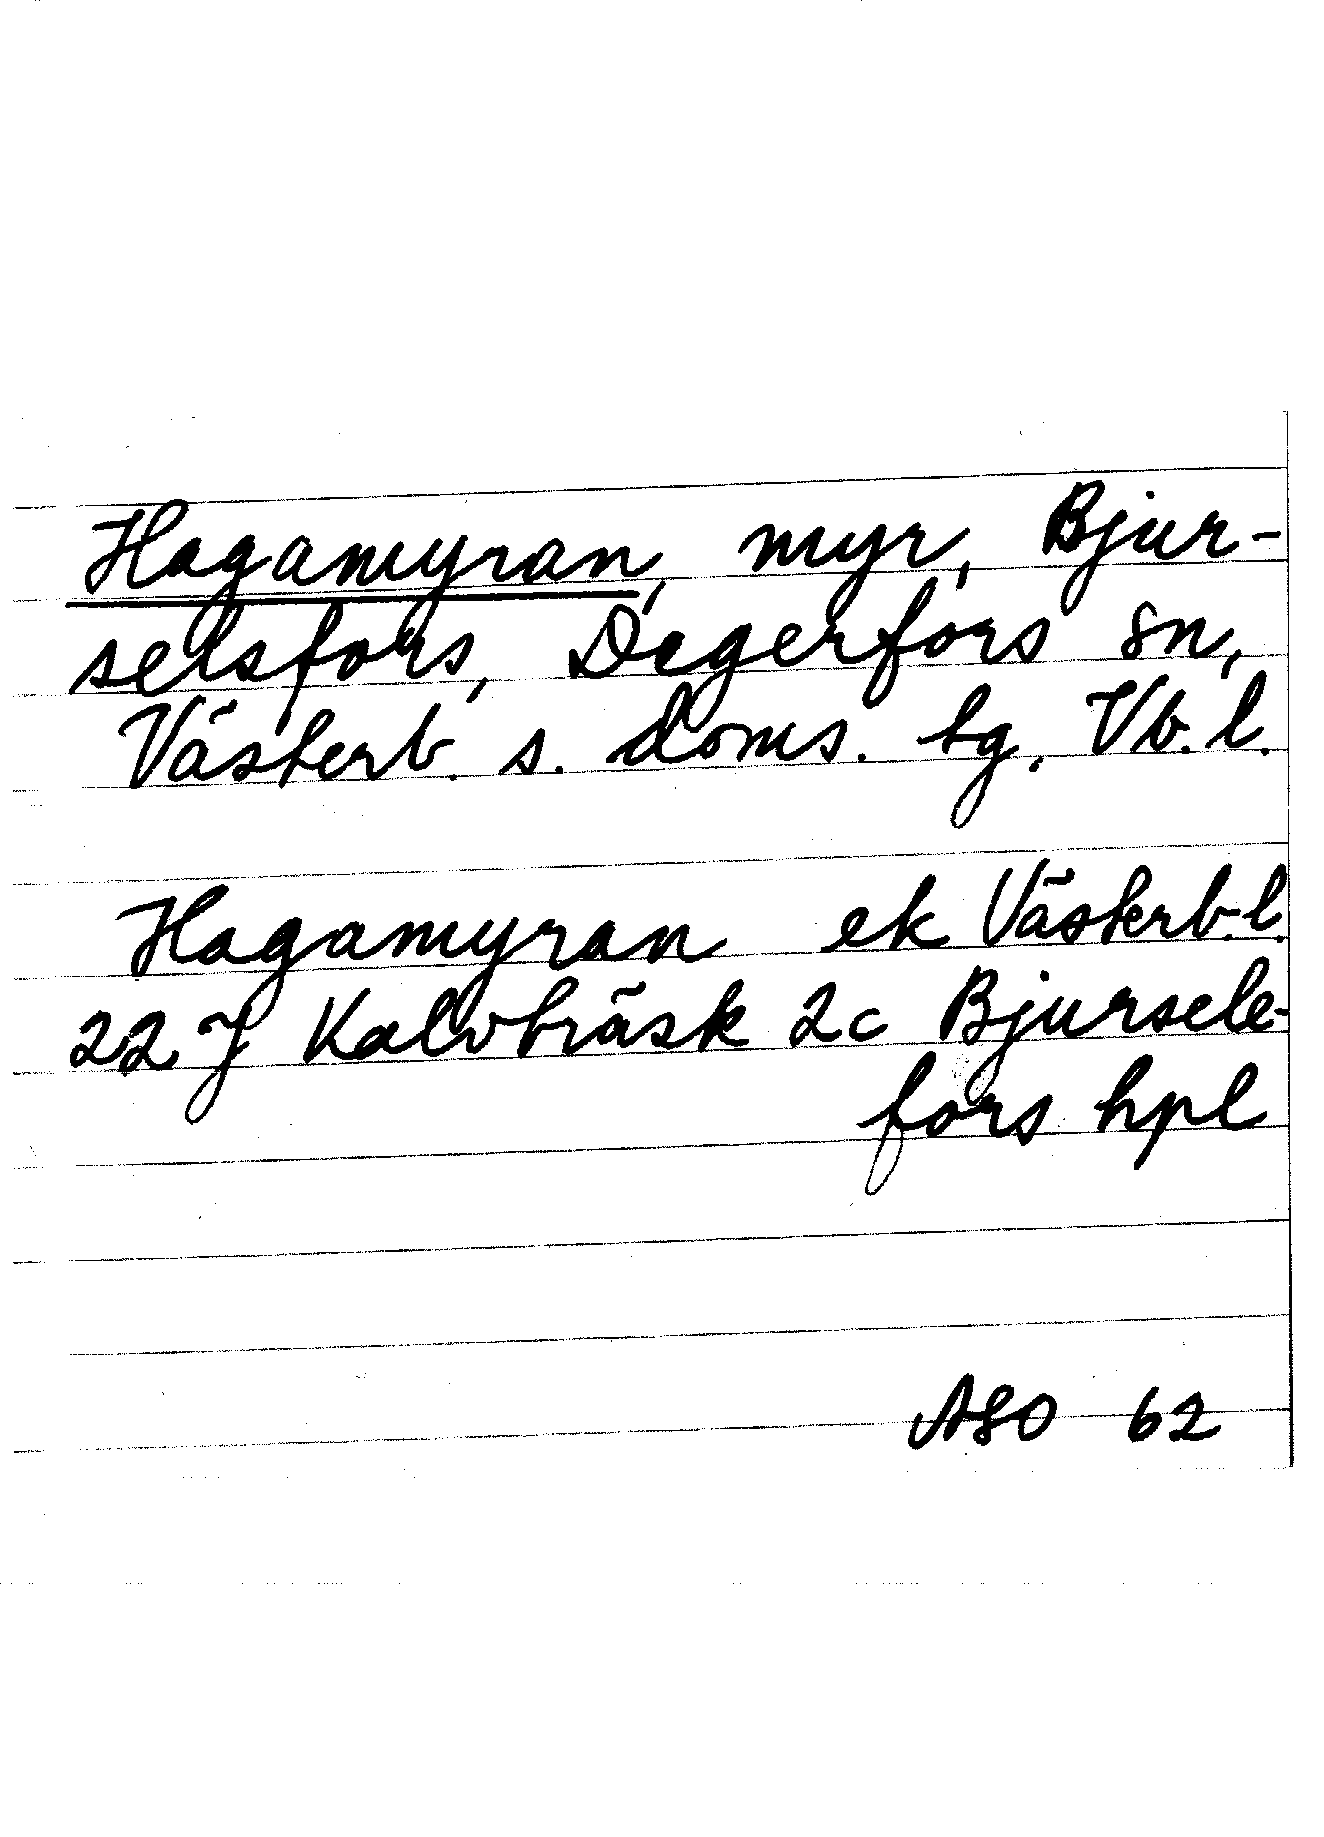 Hagamyran, myr, Bjur-
selsfors, Degerfors sn,
Västerb. s. doms. tg. Vb. l.
Hagamyran ek Västerb. l.
22 J Kalvträsk 2c Bjursele-
fors hpl
ASO 62